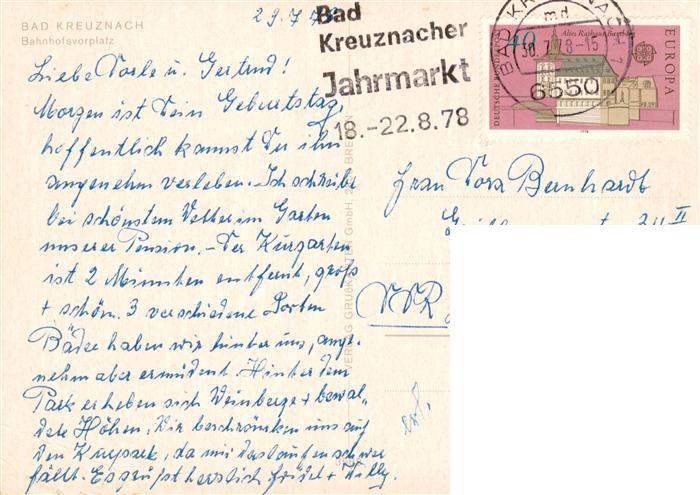 BAD KREUZNACH
Bahnhofsvorplatz
29.7.78
Liebe Dorle u. Gertrud!
Morgen ist Dein Geburtstag,
hoffentlich kannst Du ihn
angenehm verleben. Ich schreibe
bei schönstem Wetter im Garten
unserer Pension. – Der Kurgarten
ist 2 Minuten entfernt, groß
+ schön. 3 verschiedene Sorten
Bäder haben wir hinter uns, ange-
nehm aber ermüdent. Hinter dem
Park erheben sich Weinberge + bewal-
dete Höhen. Wir beschränken uns auf
den Kurpark, da mir das Laufen schwer
fällt. Es grüßt herzlich Friedel + Willy.
Bad
Kreuznacher
Jahrmarkt
18.-22.8.78
BAD KREUZNACH 1
md
30.7.78-15
6550
40
Altes Rathaus Bamberg
EUROPA
DEUTSCHE BUNDESPOST
Frau Dora Bernhardt
II
DDR
VERLAG GRUßKARTEN GmbH,